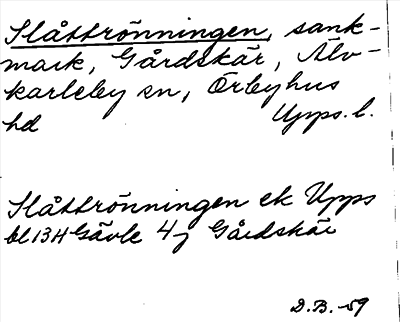 Slåttrönningen, sank-
mark, Gårdskär, Älv-
karleby sn, Örbyhus
hd Upps. l.
Slåttrönningen ek Upps
bl 13H Gävle 4j Gårdskär
D.B. -59